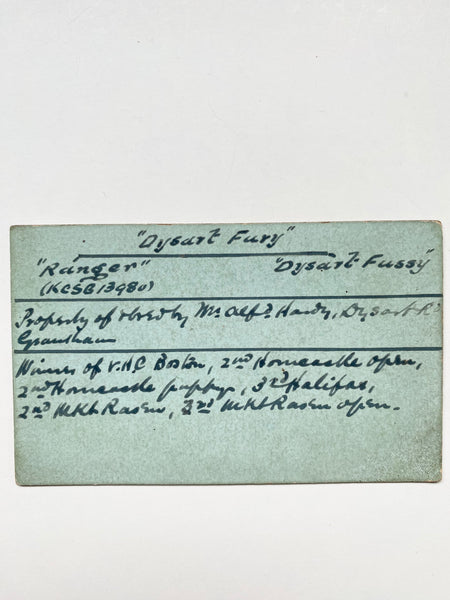 "Dysart Fury"
"Ranger" "Dysart Fussy"
(KCSB 13980)
Property of & bred by Mr Alfd Hardy, Dysart Rd
Grantham
Winner of V.H.C Boston, 2nd Horncastle open,
2nd Horncastle puppy, 3rd Halifax,
2nd Mkt Rasen, 3rd Mkt Rasen open.